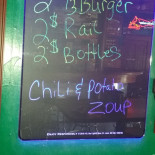 2$ Burger
2$ Rail
2$ Bottles
Chili & Potato
Zoup